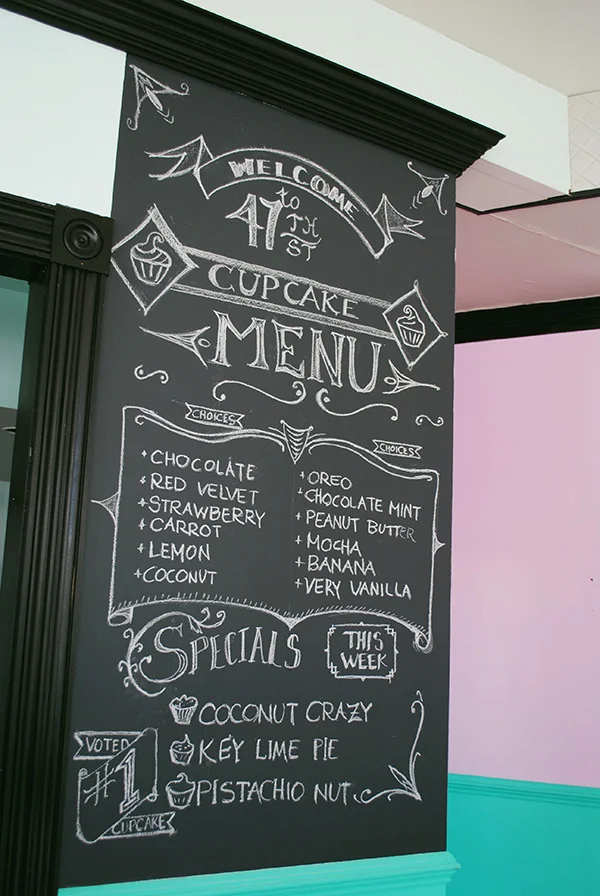 WELCOME
to
47TH
ST
CUPCAKE
MENU
CHOICES
+CHOCOLATE
+RED VELVET
+STRAWBERRY
+CARROT
+LEMON
+COCONUT
CHOICES
+OREO
+CHOCOLATE MINT
+PEANUT BUTTER
+MOCHA
+BANANA
+VERY VANILLA
SPECIALS
THIS
WEEK
COCONUT CRAZY
KEY LIME PIE
PISTACHIO NUT
VOTED
#1
CUPCAKE